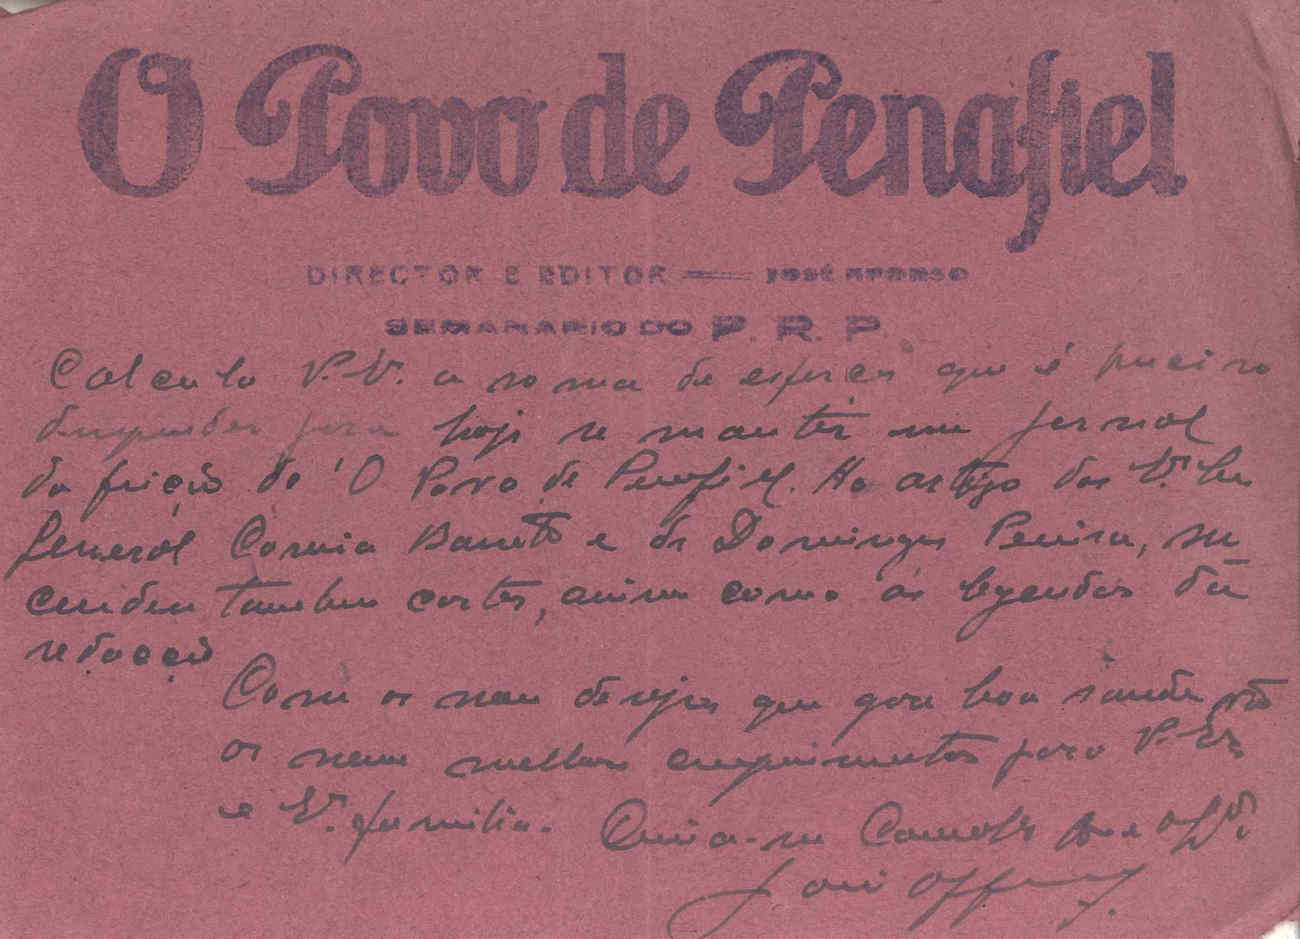 O Povo de Penafiel
DIRECTOR E EDITOR — JOSÉ AFONSO
SEMANARIO DO P. R. P.
Calcula V. a soma de esforços que é preciso
despender para hoje se manter um jornal
da feição do "O Povo de Penafiel. Ao artigo dos
General Correia Barreto e dr Domingos Pereira,
tambem cortes, assim como ás legendas da
redacção
Com os meus desejos que goze boa saude vão
os meus melhores cumprimentos para V. Ex
e V. familia.
José Affonso